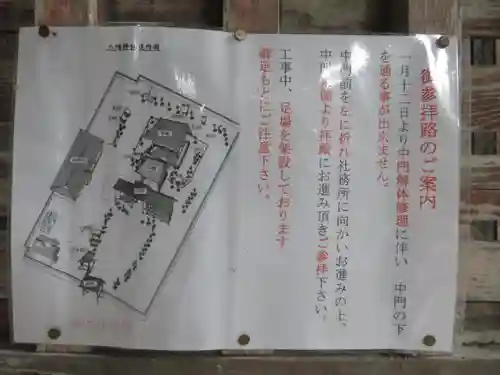 御参拝路のご案内
一月十二日より中門解体修理に伴い 中門の下
を通る事が出来ません。
中門前を左に折れ社務所に向かいお進みの上、
中門左側より拝殿にお進み頂きご参拝下さい。
工事中、足場を架設しております
御足もとにご注意下さい。